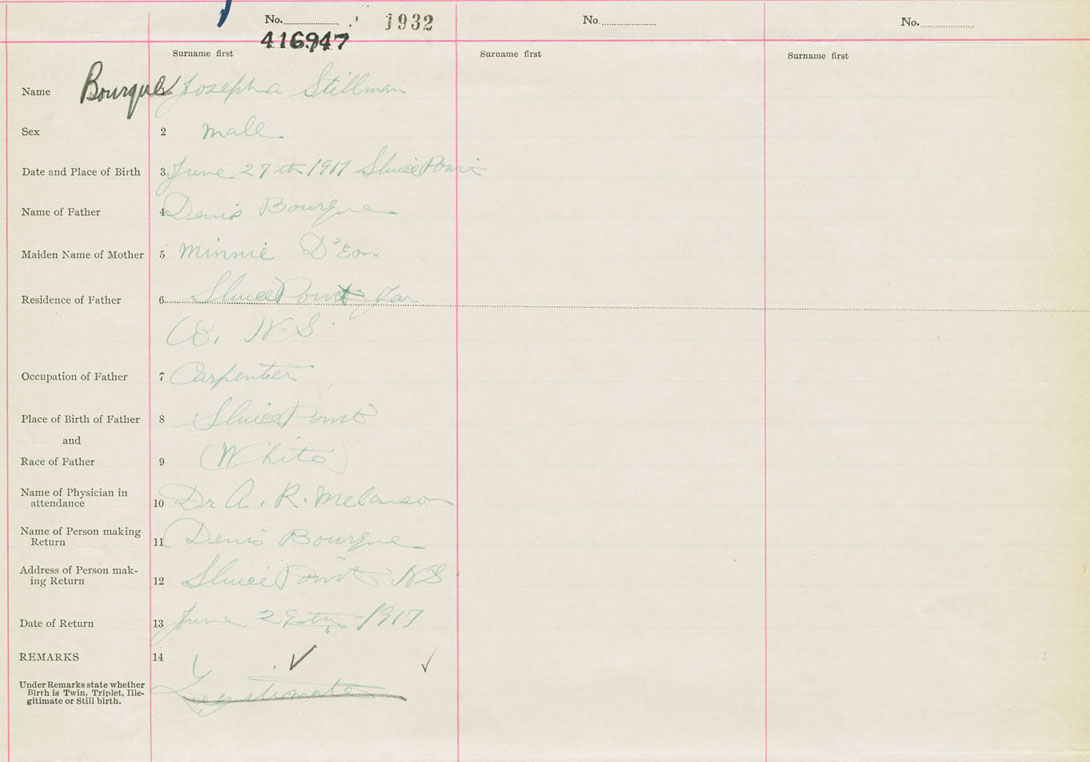 No. 1932 No. No.
416947
Surname first Surname first Surname first
Name Bourque Josephia Stillman
Sex 2 male
Date and Place of Birth 3 June 27th 1917 Sluice Point
Name of Father 4 Denis Bourque
Maiden Name of Mother 5 Minnie D'Eon
Residence of Father 6 Sluice Point Yar
Co, N.S.
Occupation of Father 7 Carpenter
Place of Birth of Father 8 Sluice Point
and
Race of Father 9 (White)
Name of Physician in
attendance 10 Dr A. R. Melanson
Name of Person making
Return 11 Denis Bourque
Address of Person mak-
ing Return 12 Sluice Point N.S
Date of Return 13 June 1917
REMARKS 14
Under Remarks state whether
Birth is Twin, Triplet, Ille-
gitimate or Still birth.